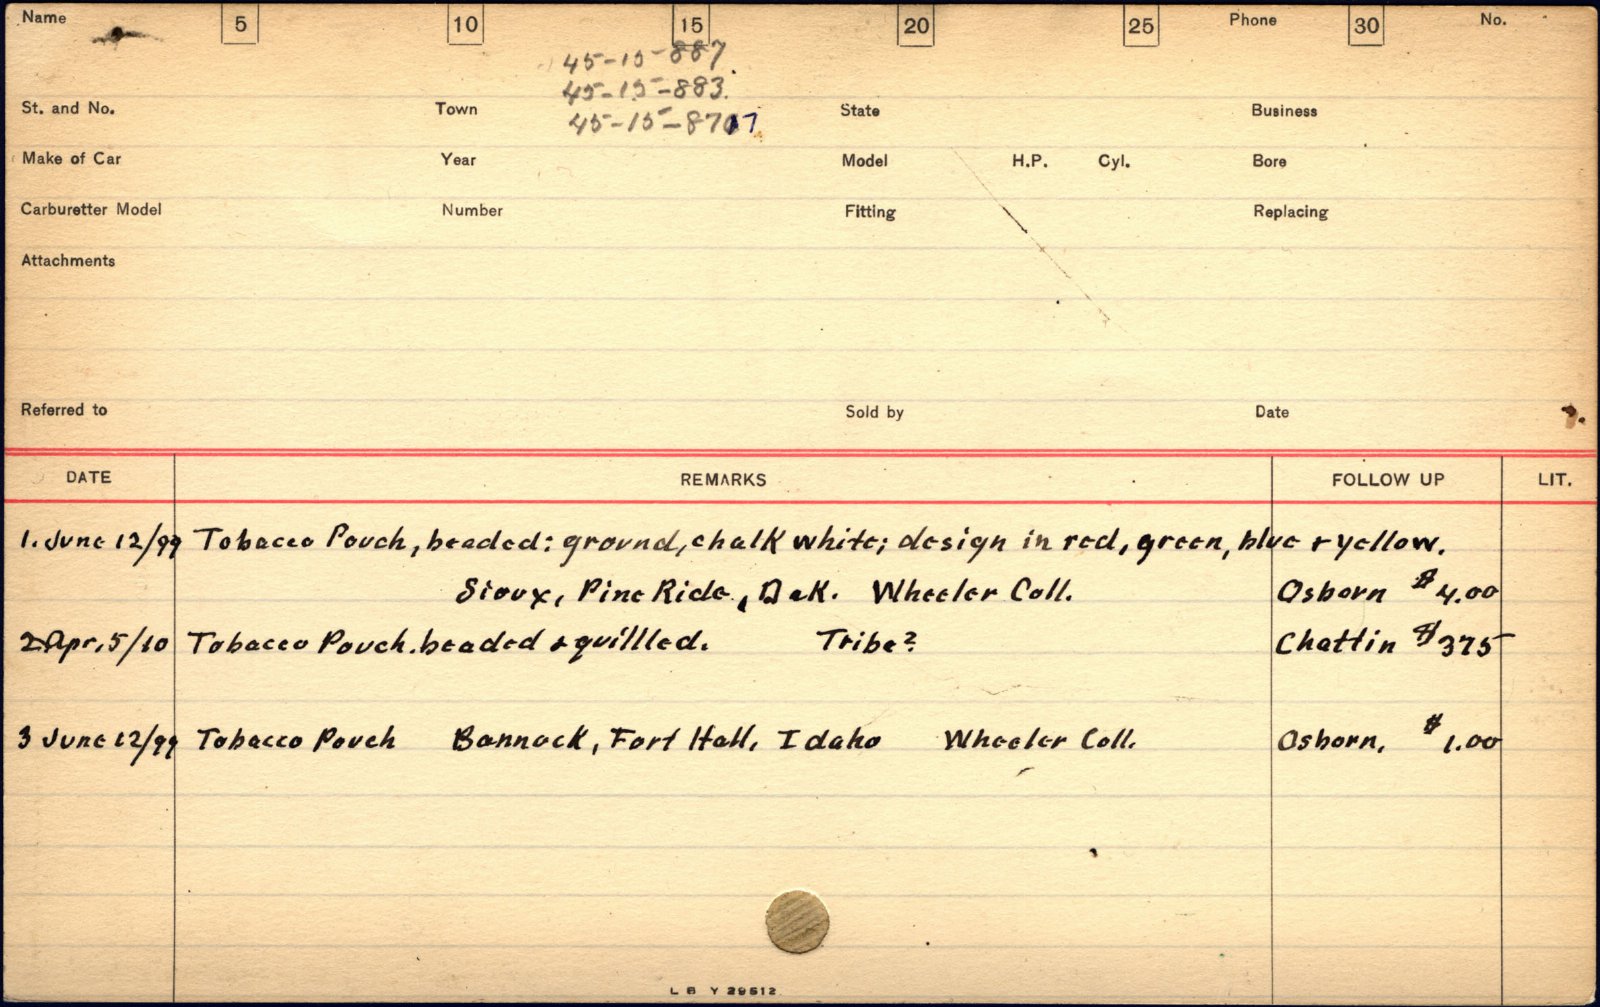 Name 5 10 15 20 25 Phone 30 No.
45-15-887
45-15-883
St. and No. Town State Business
45-15-877
Make of Car Year Model H.P. Cyl. Bore
Carburetter Model Number Fitting Replacing
Attachments
Referred to Sold by Date
DATE REMARKS FOLLOW UP LIT.
1. June 12/99 Tobacco Pouch, beaded: ground, chalk white; design in red, green, blue + yellow.
Sioux, Pine Ride, Dak. Wheeler Coll. Osborn $4.00
2 Apr. 5/10 Tobacco Pouch. beaded & quillled. Tribe? Chattin $375
3 June 12/99 Tobacco Pouch Bannock, Fort Hall, Idaho Wheeler Coll. Osborn. $1.00
L B Y 29512